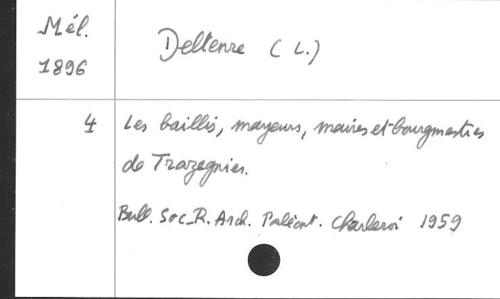 Mél.
1896
Deltenre (L.)
4
Les baillis, mayeurs, maires et bourgmestres
de Trazegnies.
Bull. Soc. R. Arch. Paléont. Charleroi 1959